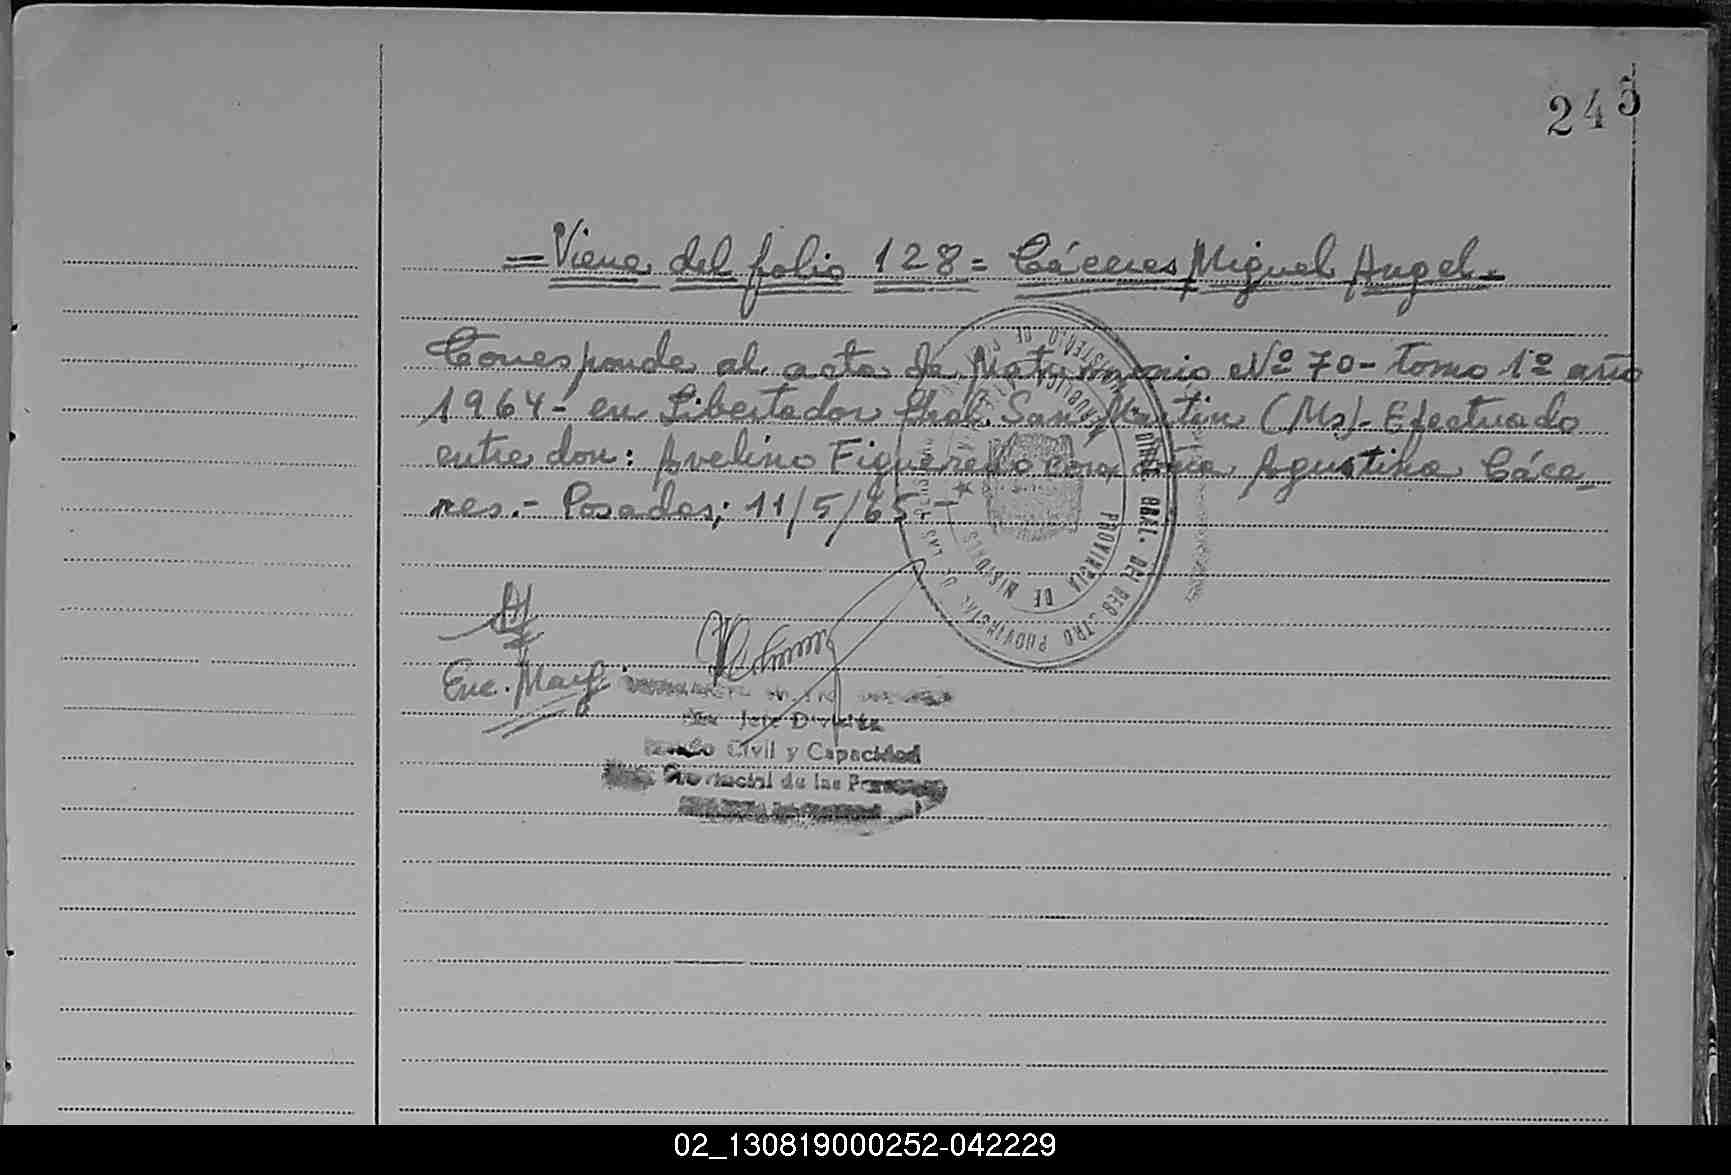 245
= Viene del folio 128 = Cáceres Miguel Angel.-
Corresponde al acta de Matrimonio Nº 70 - tomo 1º año
1964 - en Libertador Gral. San Martin (Ms). Efectuado
entre don: Avelino Figueredo con doña Agustina Cáce-
res.- Posadas; 11/5/65 -
DIRE. GRAL. DEL REGISTRO PROVINCIAL DE LAS
PROVINCIA DE MISIONES
Enc. Marg.
Jefe División
Civil y Capacidad
Provincial de las
02_130819000252-042229